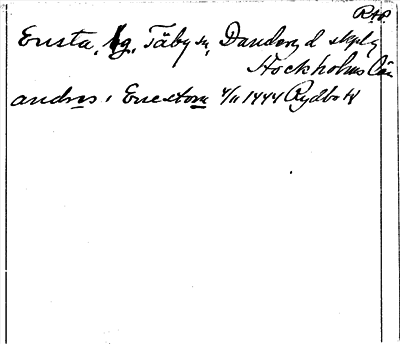 RAp.
Ensta, bg, Täby sn, Danderyd skplg
Stockholms län
andres i Enestom 4/11 1444 Rydbo H